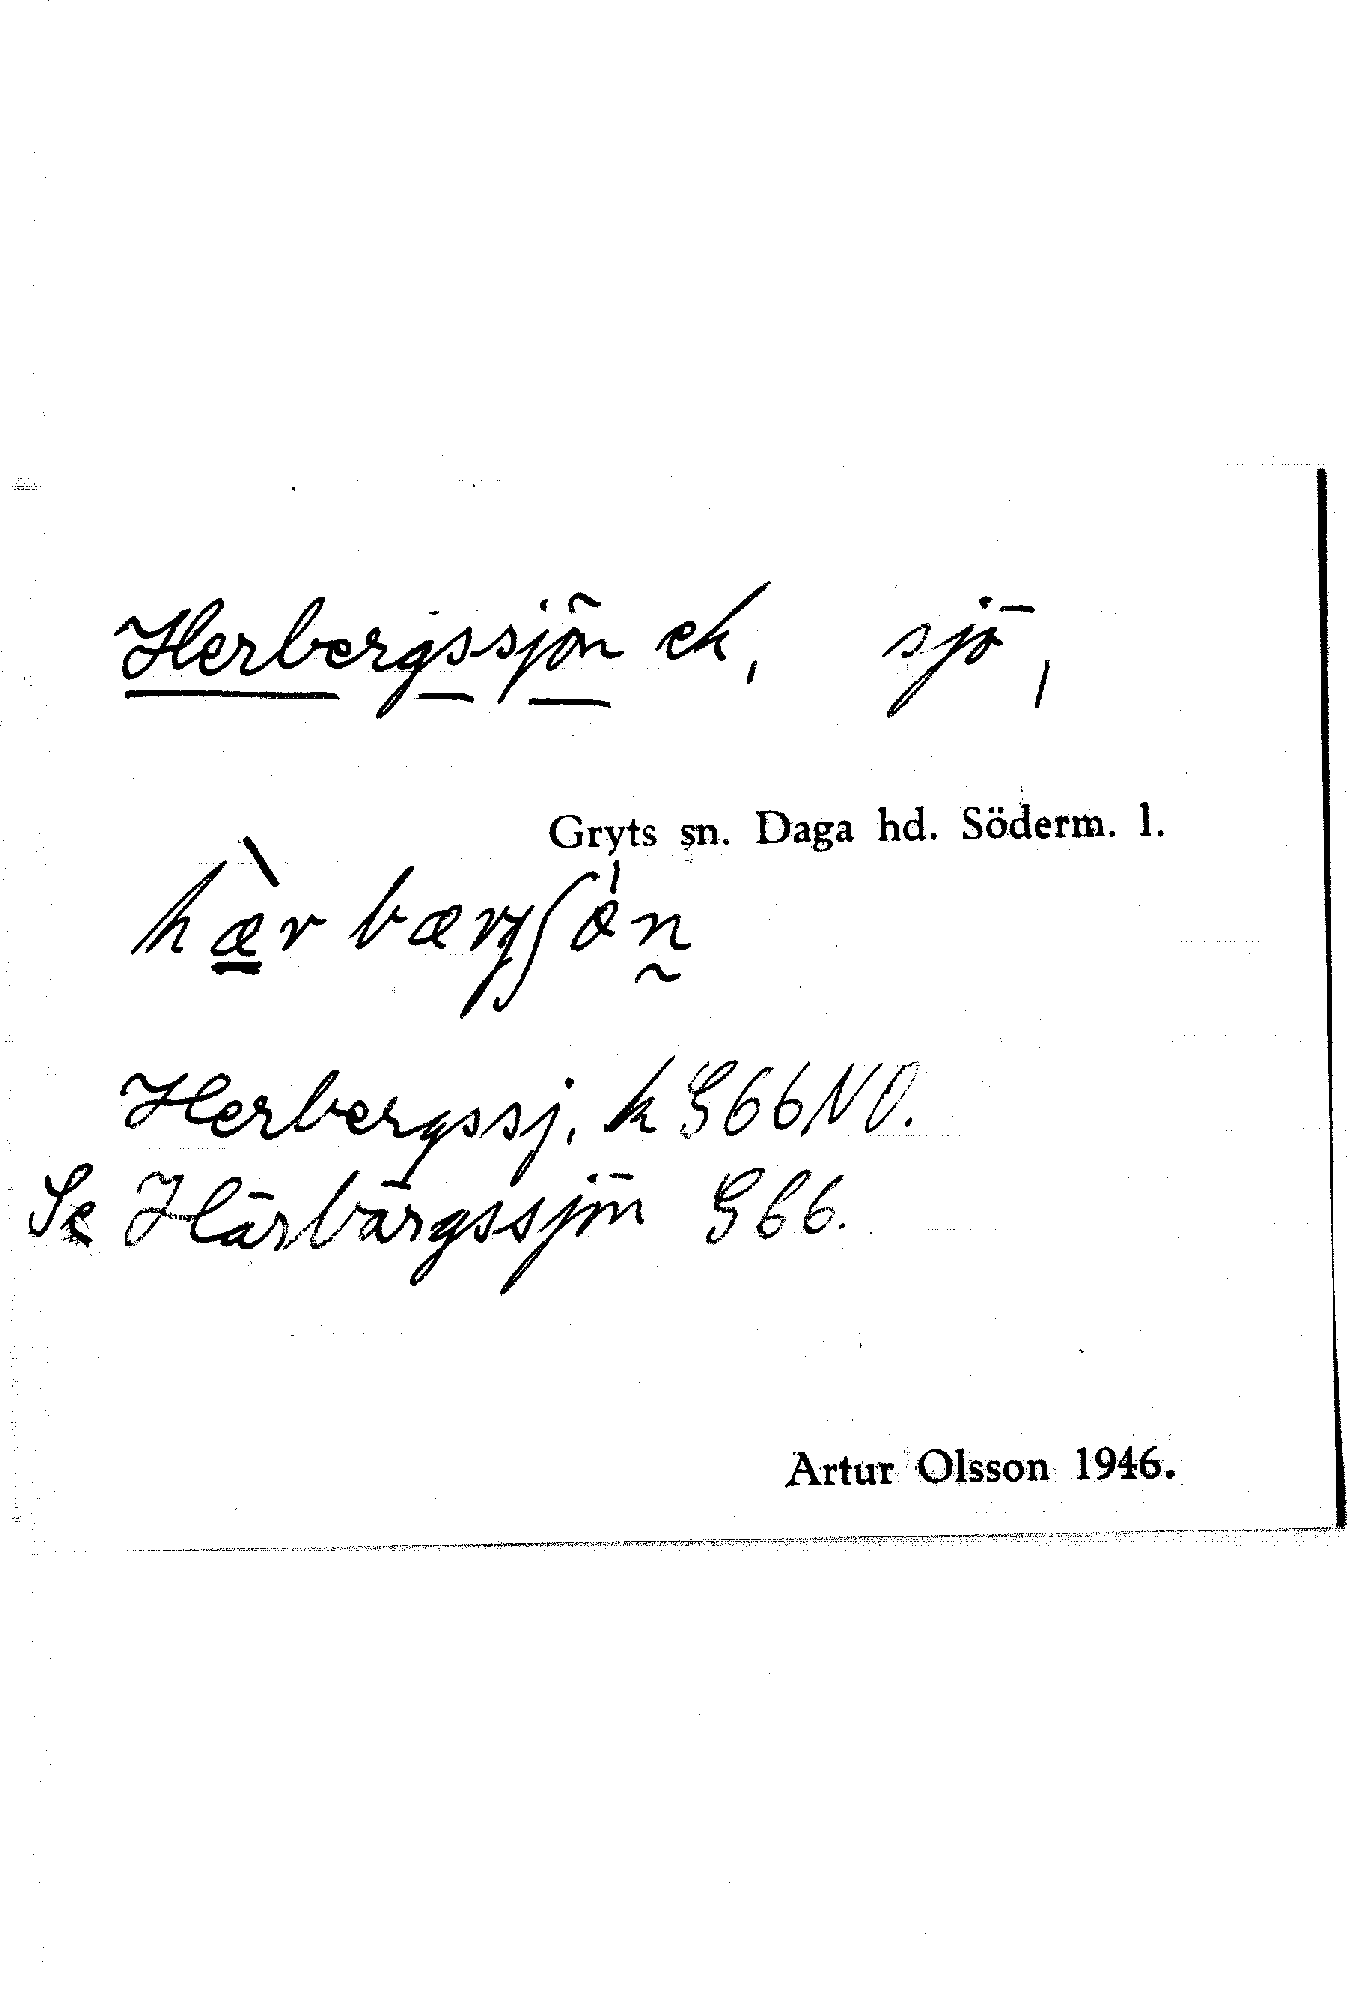 Herbergssjön ek, sjö,
Gryts sn. Daga hd. Söderm. l.
hæ̀rbærgʃǿn̰
Herbergssj. k G66NO.
Se Härbärgssjön G66.
Artur Olsson 1946.